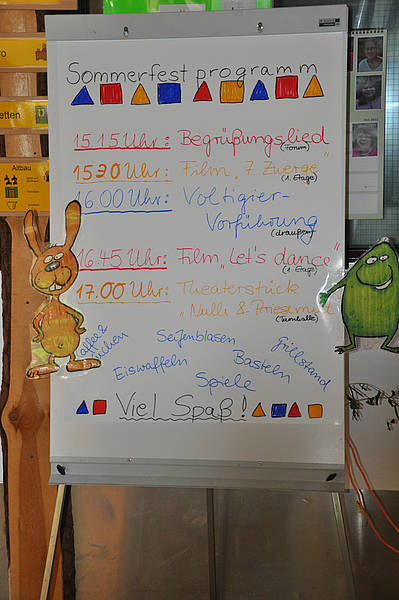 Sommerfestprogramm
15.15 Uhr: Begrüßungslied
(Forum)
15.30 Uhr: Film „7 Zwerge"
(1. Etage)
16.00 Uhr: Voltigier-
Vorführung
(draußen)
16.45 Uhr: Film „Let's dance"
(1. Etage)
17.00 Uhr: Theaterstück
„Nulli &
(Turnhalle)
Kaffee &
Kuchen
Seifenblasen
Grillstand
Eiswaffeln
Basteln
Spiele
Viel Spaß!
Altbau